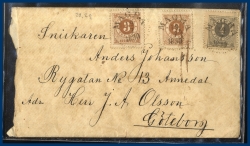 Snickaren
Anders Johansson
Rygatan No 13 Annedal
Adr Herr J. A. Olsson
Göteborg